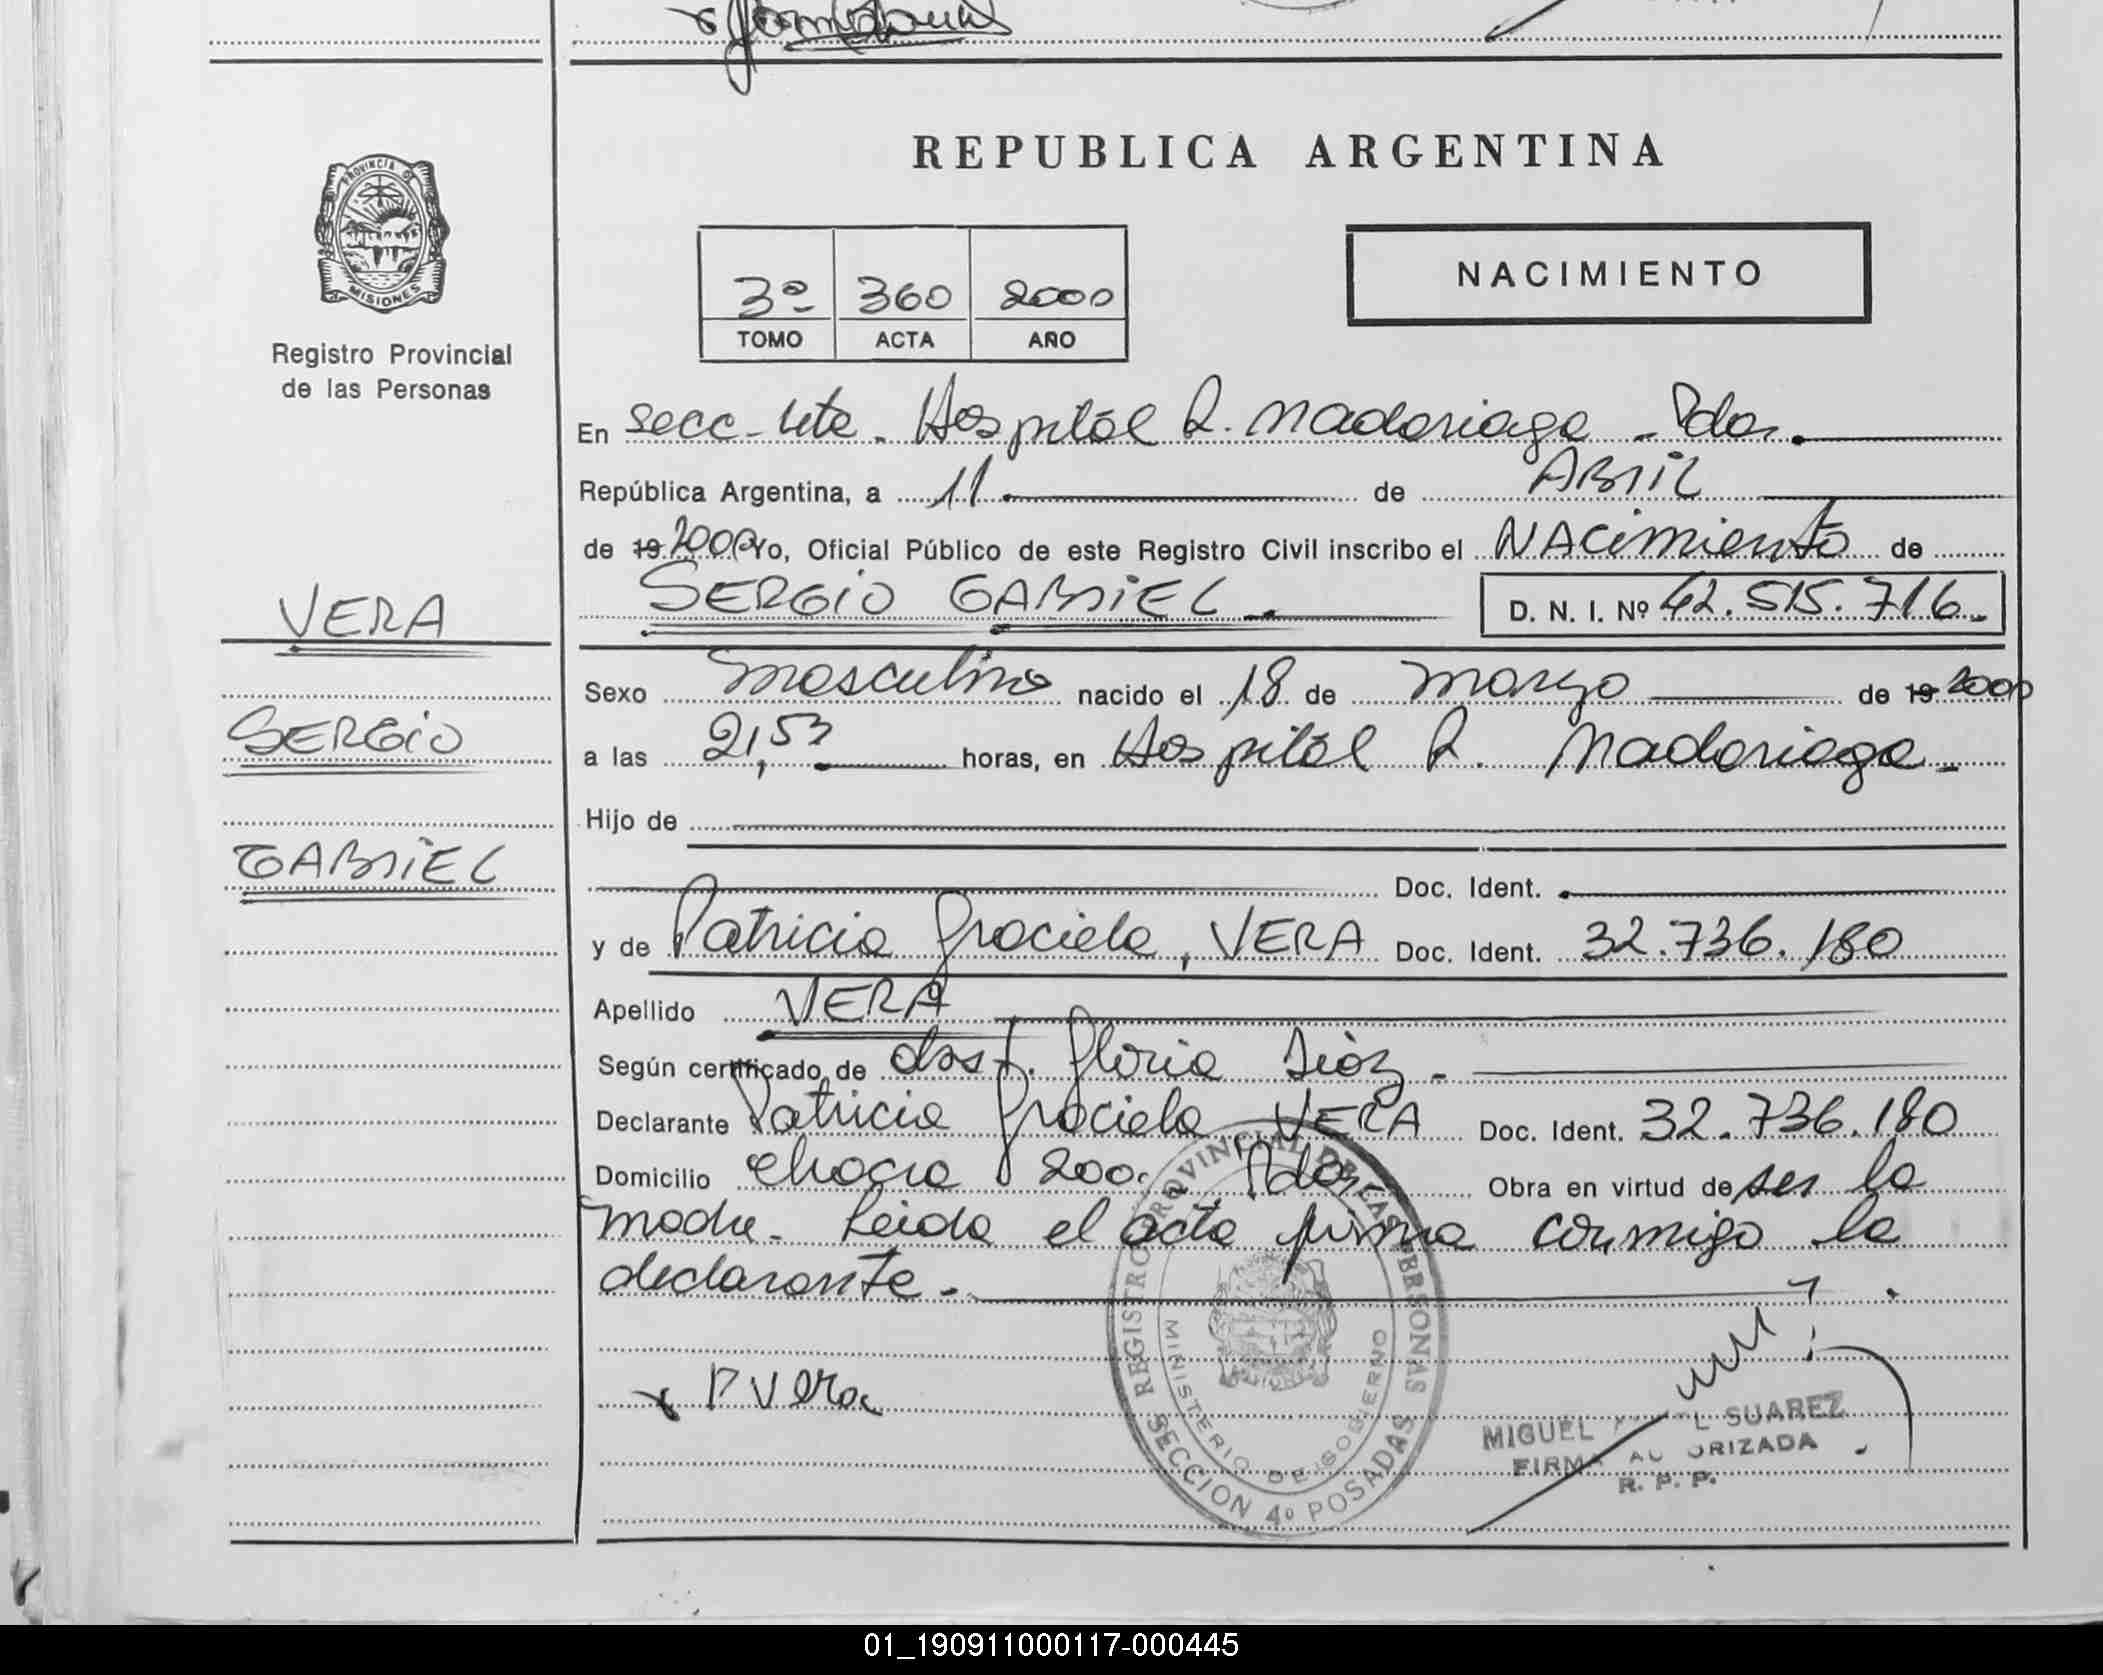 REPUBLICA ARGENTINA
PROVINCIA DE
MISIONES
Registro Provincial
de las Personas
3º 360 2000
TOMO ACTA AÑO
NACIMIENTO
En secc- 4ta. Hospital R. Madariaga - Pdas.
República Argentina, a 11 de Abril
de 19 2000 Yo, Oficial Público de este Registro Civil inscribo el NAcimiento de
SERGIO GABRIEL. D. N. I. Nº 42.515.716.
VERA
SERGIO
GABRIEL
Sexo masculino nacido el 18 de marzo de 19 2000
a las 21,53 horas, en Hospital R. Madariaga-
Hijo de
Doc. Ident.
y de Patricia Graciela, VERA Doc. Ident. 32.736.180
Apellido VERA
Según certificado de obst. Gloria Dióz -
Declarante Patricia Graciela VERA Doc. Ident. 32.736.180
Domicilio Chacra 200. Pdas- Obra en virtud de ser la
madre- Leida el acta firma conmigo la
declarante.-
P Vera
REGISTRO PROVINCIAL DE LAS PERSONAS
MINISTERIO DE GOBIERNO
SECCION 4º POSADAS
MIGUEL SUAREZ
FIRMA AUTORIZADA
R. P. P.
01_190911000117-000445